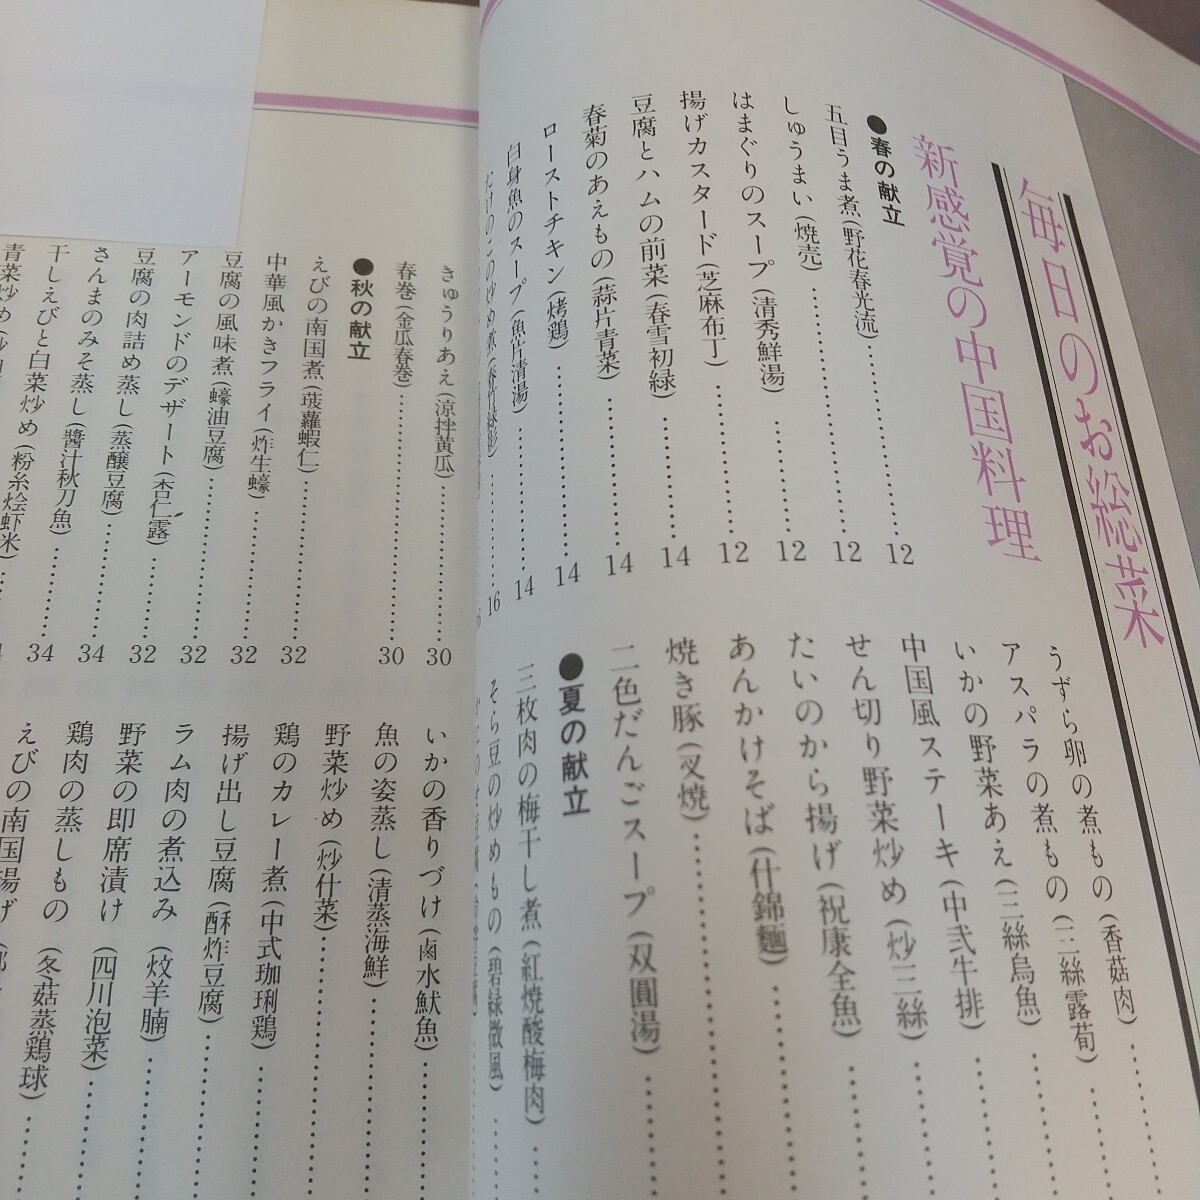 毎日のお総菜
新感覚の中国料理
●春の献立
五目うま煮(野花春光流)………12
しゅうまい(焼売)………12
はまぐりのスープ(清秀鮮湯)………12
揚げカスタード(芝麻布丁)………12
豆腐とハムの前菜(春雪初緑)………14
春菊のあえもの(蒜片青菜)………14
ローストチキン(烤鶏)………14
白身魚のスープ(魚片清湯)………14
たけのこの炒め煮………16
うずら卵の煮もの(香菇肉)………
アスパラの煮もの(三絲露荀)………
いかの野菜あえ(三絲烏魚)………
中国風ステーキ(中弐牛排)………
せん切り野菜炒め(炒三絲)………
たいのから揚げ(祝康全魚)………
あんかけそば(什錦麵)………
焼き豚(叉焼)………
二色だんごスープ(双圓湯)………
●夏の献立
三枚肉の梅干し煮(紅焼酸梅肉)………
そら豆の炒めもの(碧緑微風)………
きゅうりあえ(涼拌黄瓜)………30
春巻(金瓜春巻)………30
●秋の献立
えびの南国煮(菠蘿蝦仁)………32
中華風かきフライ(炸生蠔)………32
豆腐の風味煮(蠔油豆腐)………32
アーモンドのデザート(杏仁露)………32
豆腐の肉詰め蒸し(蒸醸豆腐)………34
さんまのみそ蒸し(醬汁秋刀魚)………34
干しえびと白菜炒め(粉糸烩虾米)………
いかの香りづけ(鹵水魷魚)………
魚の姿蒸し(清蒸海鮮)………
野菜炒め(炒什菜)………
鶏のカレー煮(中式珈琍鶏)………
揚げ出し豆腐(酥炸豆腐)………
ラム肉の煮込み(炆羊腩)………
野菜の即席漬け(四川泡菜)………
鶏肉の蒸しもの(冬菇蒸鶏球)………
えびの南国揚げ